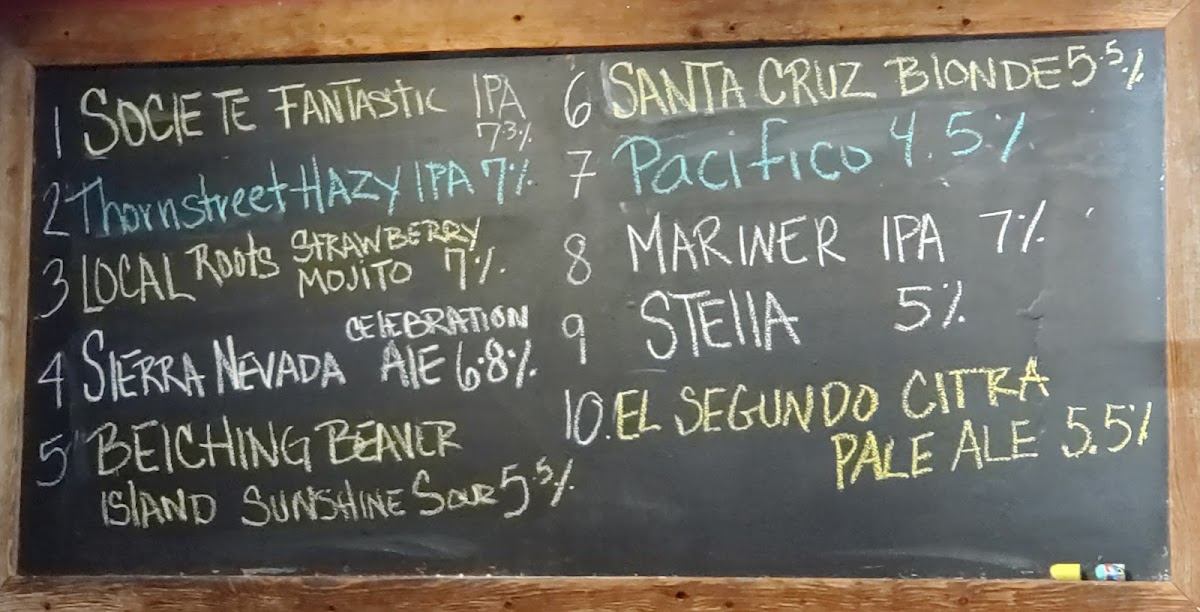 1 SOCIETE FANTASTIC IPA
7.3%
2 Thornstreet HAZY IPA 7%
3 LOCAL Roots STRAWBERRY
MOJITO 7%
4 SIERRA NEVADA CELEBRATION
ALE 6.8%
5 BELCHING BEAVER
ISLAND SUNSHINE SOUR 5.5%
6 SANTA CRUZ BLONDE 5.5%
7 Pacifico 4.5%
8 MARINER IPA 7%
9 STELLA 5%
10. EL SEGUNDO CITRA
PALE ALE 5.5%